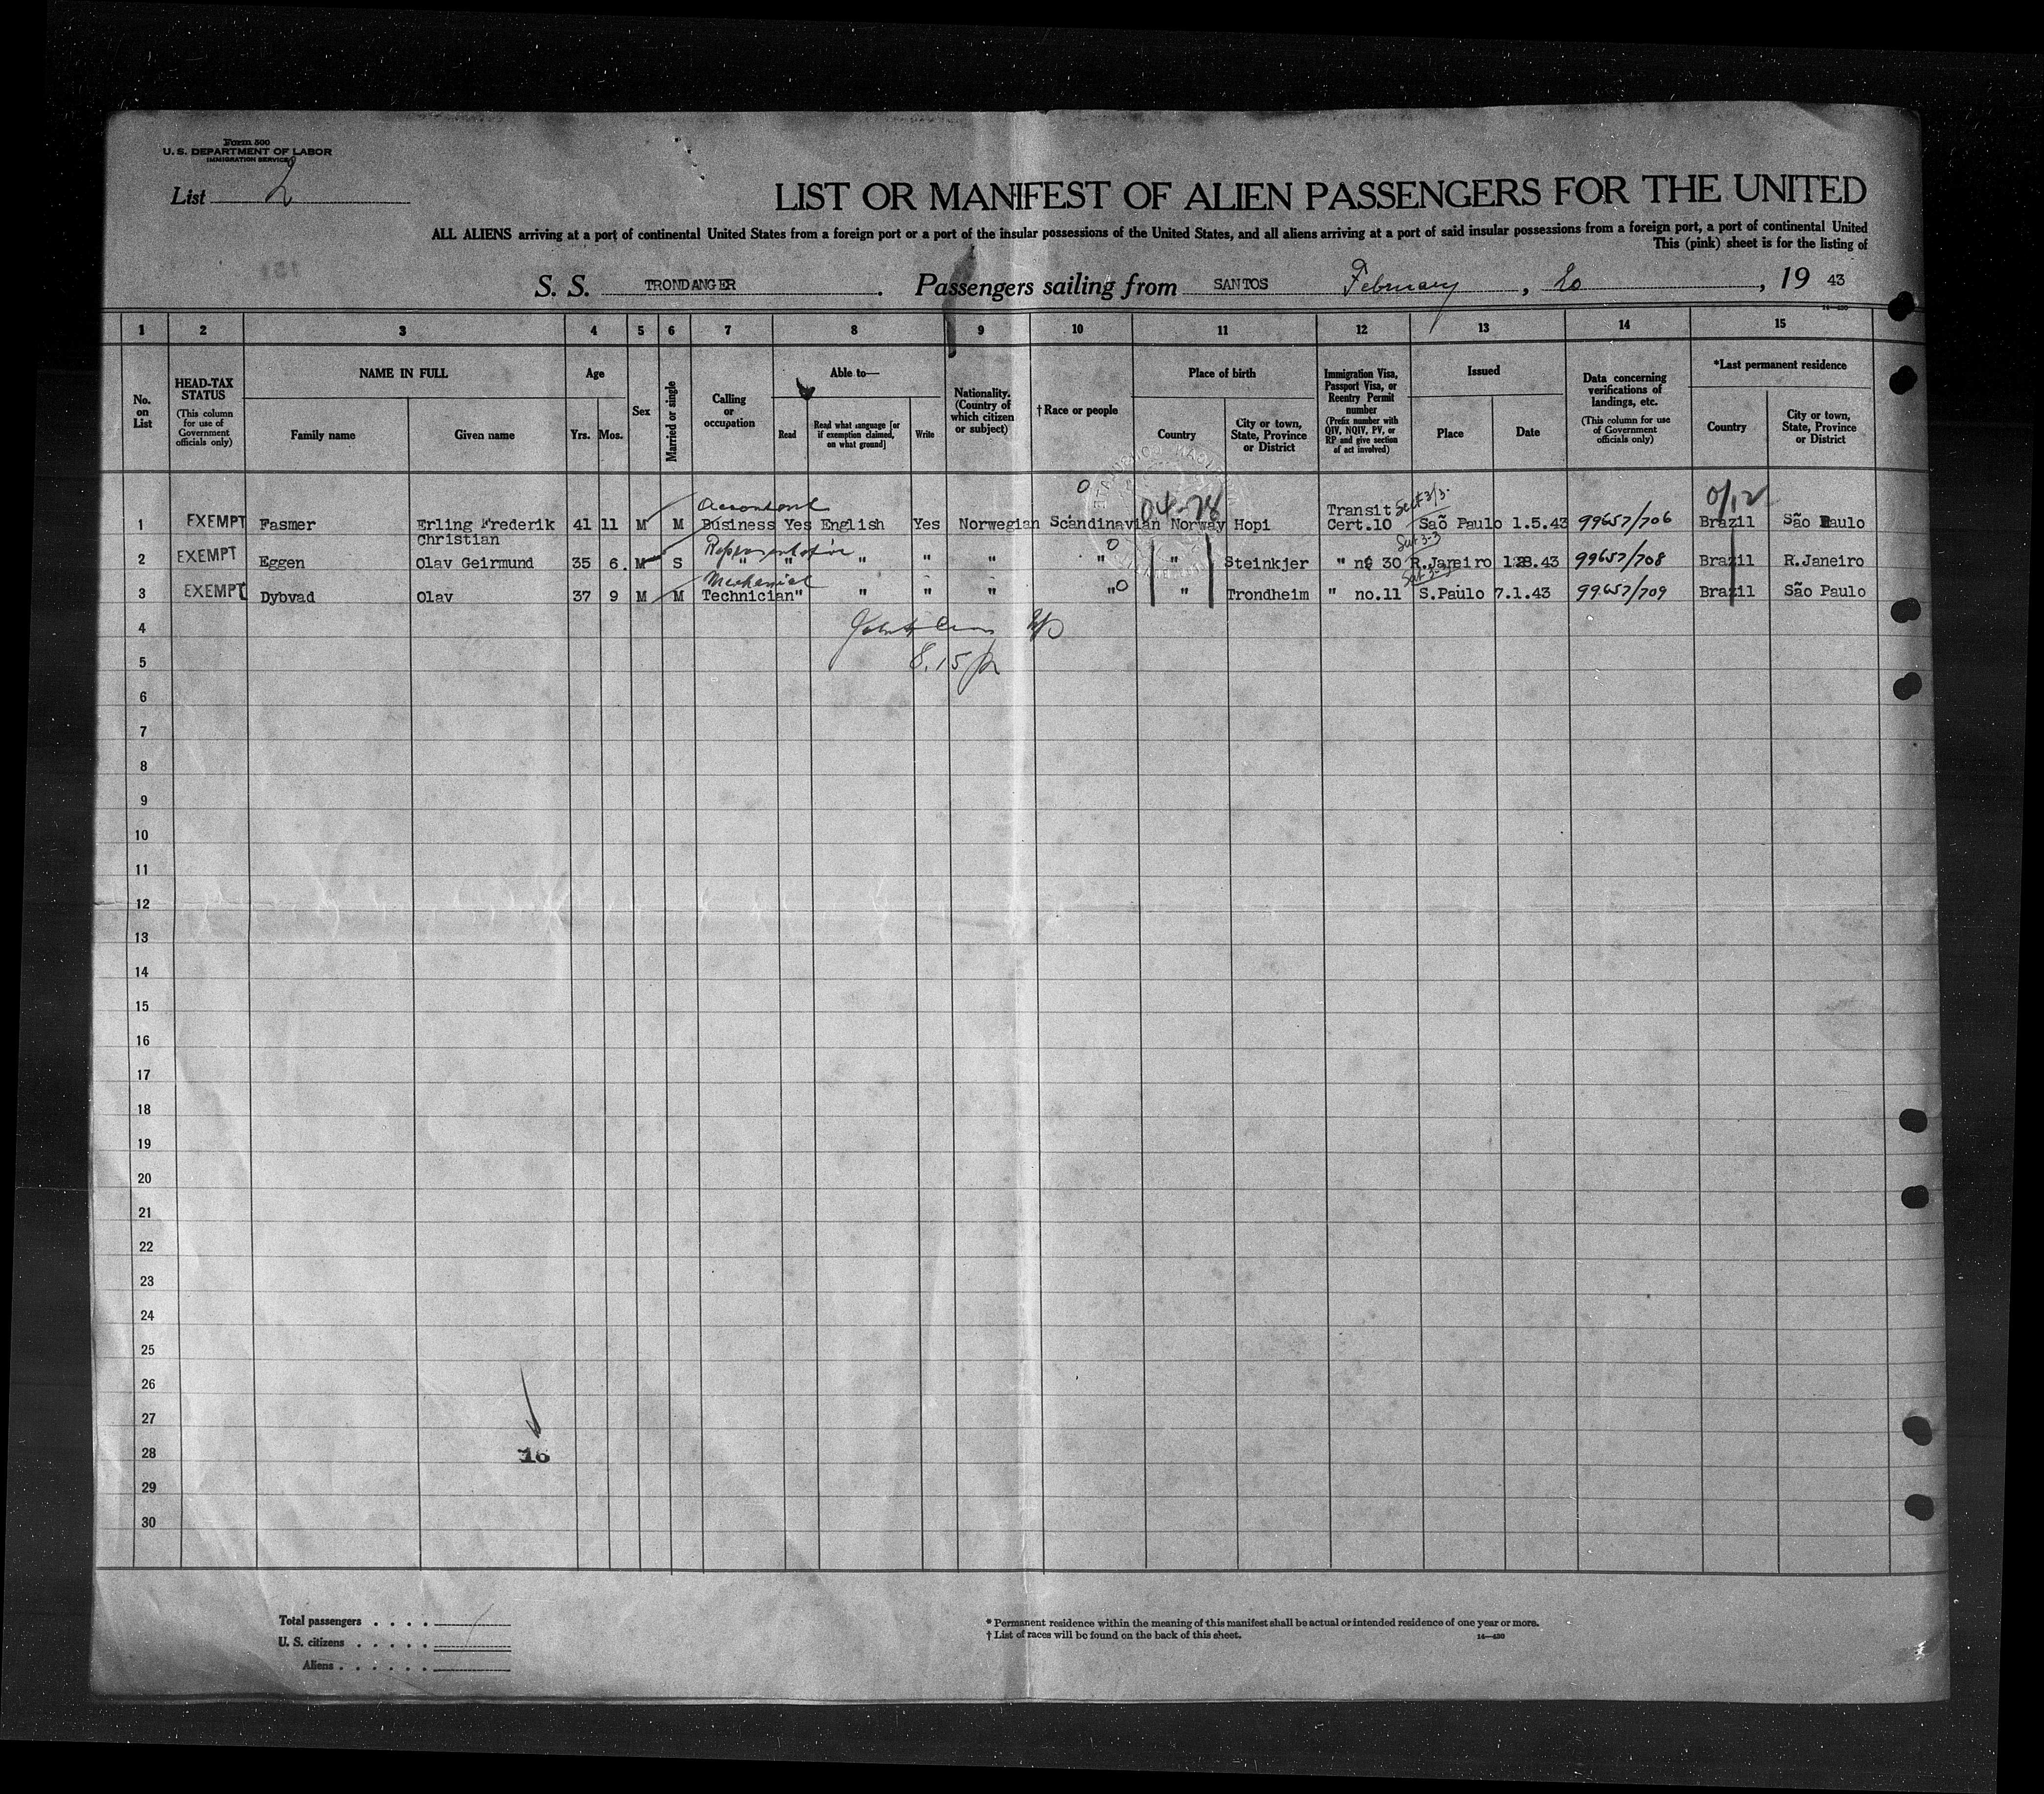 Form 500
U. S. DEPARTMENT OF LABOR
IMMIGRATION SERVICE
List 2
LIST OR MANIFEST OF ALIEN PASSENGERS FOR THE UNITED
ALL ALIENS arriving at a port of continental United States from a foreign port or a port of the insular possessions of the United States, and all aliens arriving at a port of said insular possessions from a foreign port, a port of continental United
This (pink) sheet is for the listing of
S. S. TRONDANGER . Passengers sailing from SANTOS February , 20 , 19 43
1 2 3 4 5 6 7 8 9 10 11 12 13 14 15
No. on List
HEAD-TAX STATUS (This column for use of Government officials only)
NAME IN FULL
Family name
Given name
Age
Yrs. Mos.
Sex
Married or single
Calling or occupation
Able to—
Read
Read what language [or if exemption claimed, on what ground]
Write
Nationality. (Country of which citizen or subject)
† Race or people
Place of birth
Country
City or town, State, Province or District
Immigration Visa, Passport Visa, or Reentry Permit number (Prefix number with QIV, NQIV, PV, or RP and give section of act involved)
Issued
Place
Date
Data concerning verifications of landings, etc. (This column for use of Government officials only)
*Last permanent residence
Country
City or town, State, Province or District
Accountant
04-78
0/12
1 EXEMPT Fasmer Erling Frederik Christian 41 11 M M Business Yes English Yes Norwegian Scandinavian Norway Hopi Transit Cert.10 Sect 3/3 Saõ Paulo 1.5.43 99657/706 Brazil São Paulo
Representative
2 EXEMPT Eggen Olav Geirmund 35 6. M S " " " " " " " Steinkjer " nº 30 R.Janeiro 43 99657/708 Brazil R.Janeiro
Mechanical
3 EXEMPT Dybvad Olav 37 9 M M Technician " " " " " " Trondheim " no.11 S.Paulo 7.1.43 99657/709 Brazil São Paulo
4
8.15 p
5
6
7
8
9
10
11
12
13
14
15
16
17
18
19
20
21
22
23
24
25
26
27
28 16
29
30
Total passengers . . . .
U. S. citizens . . . . .
Aliens . . . . . .
* Permanent residence within the meaning of this manifest shall be actual or intended residence of one year or more.
† List of races will be found on the back of this sheet.
14—430